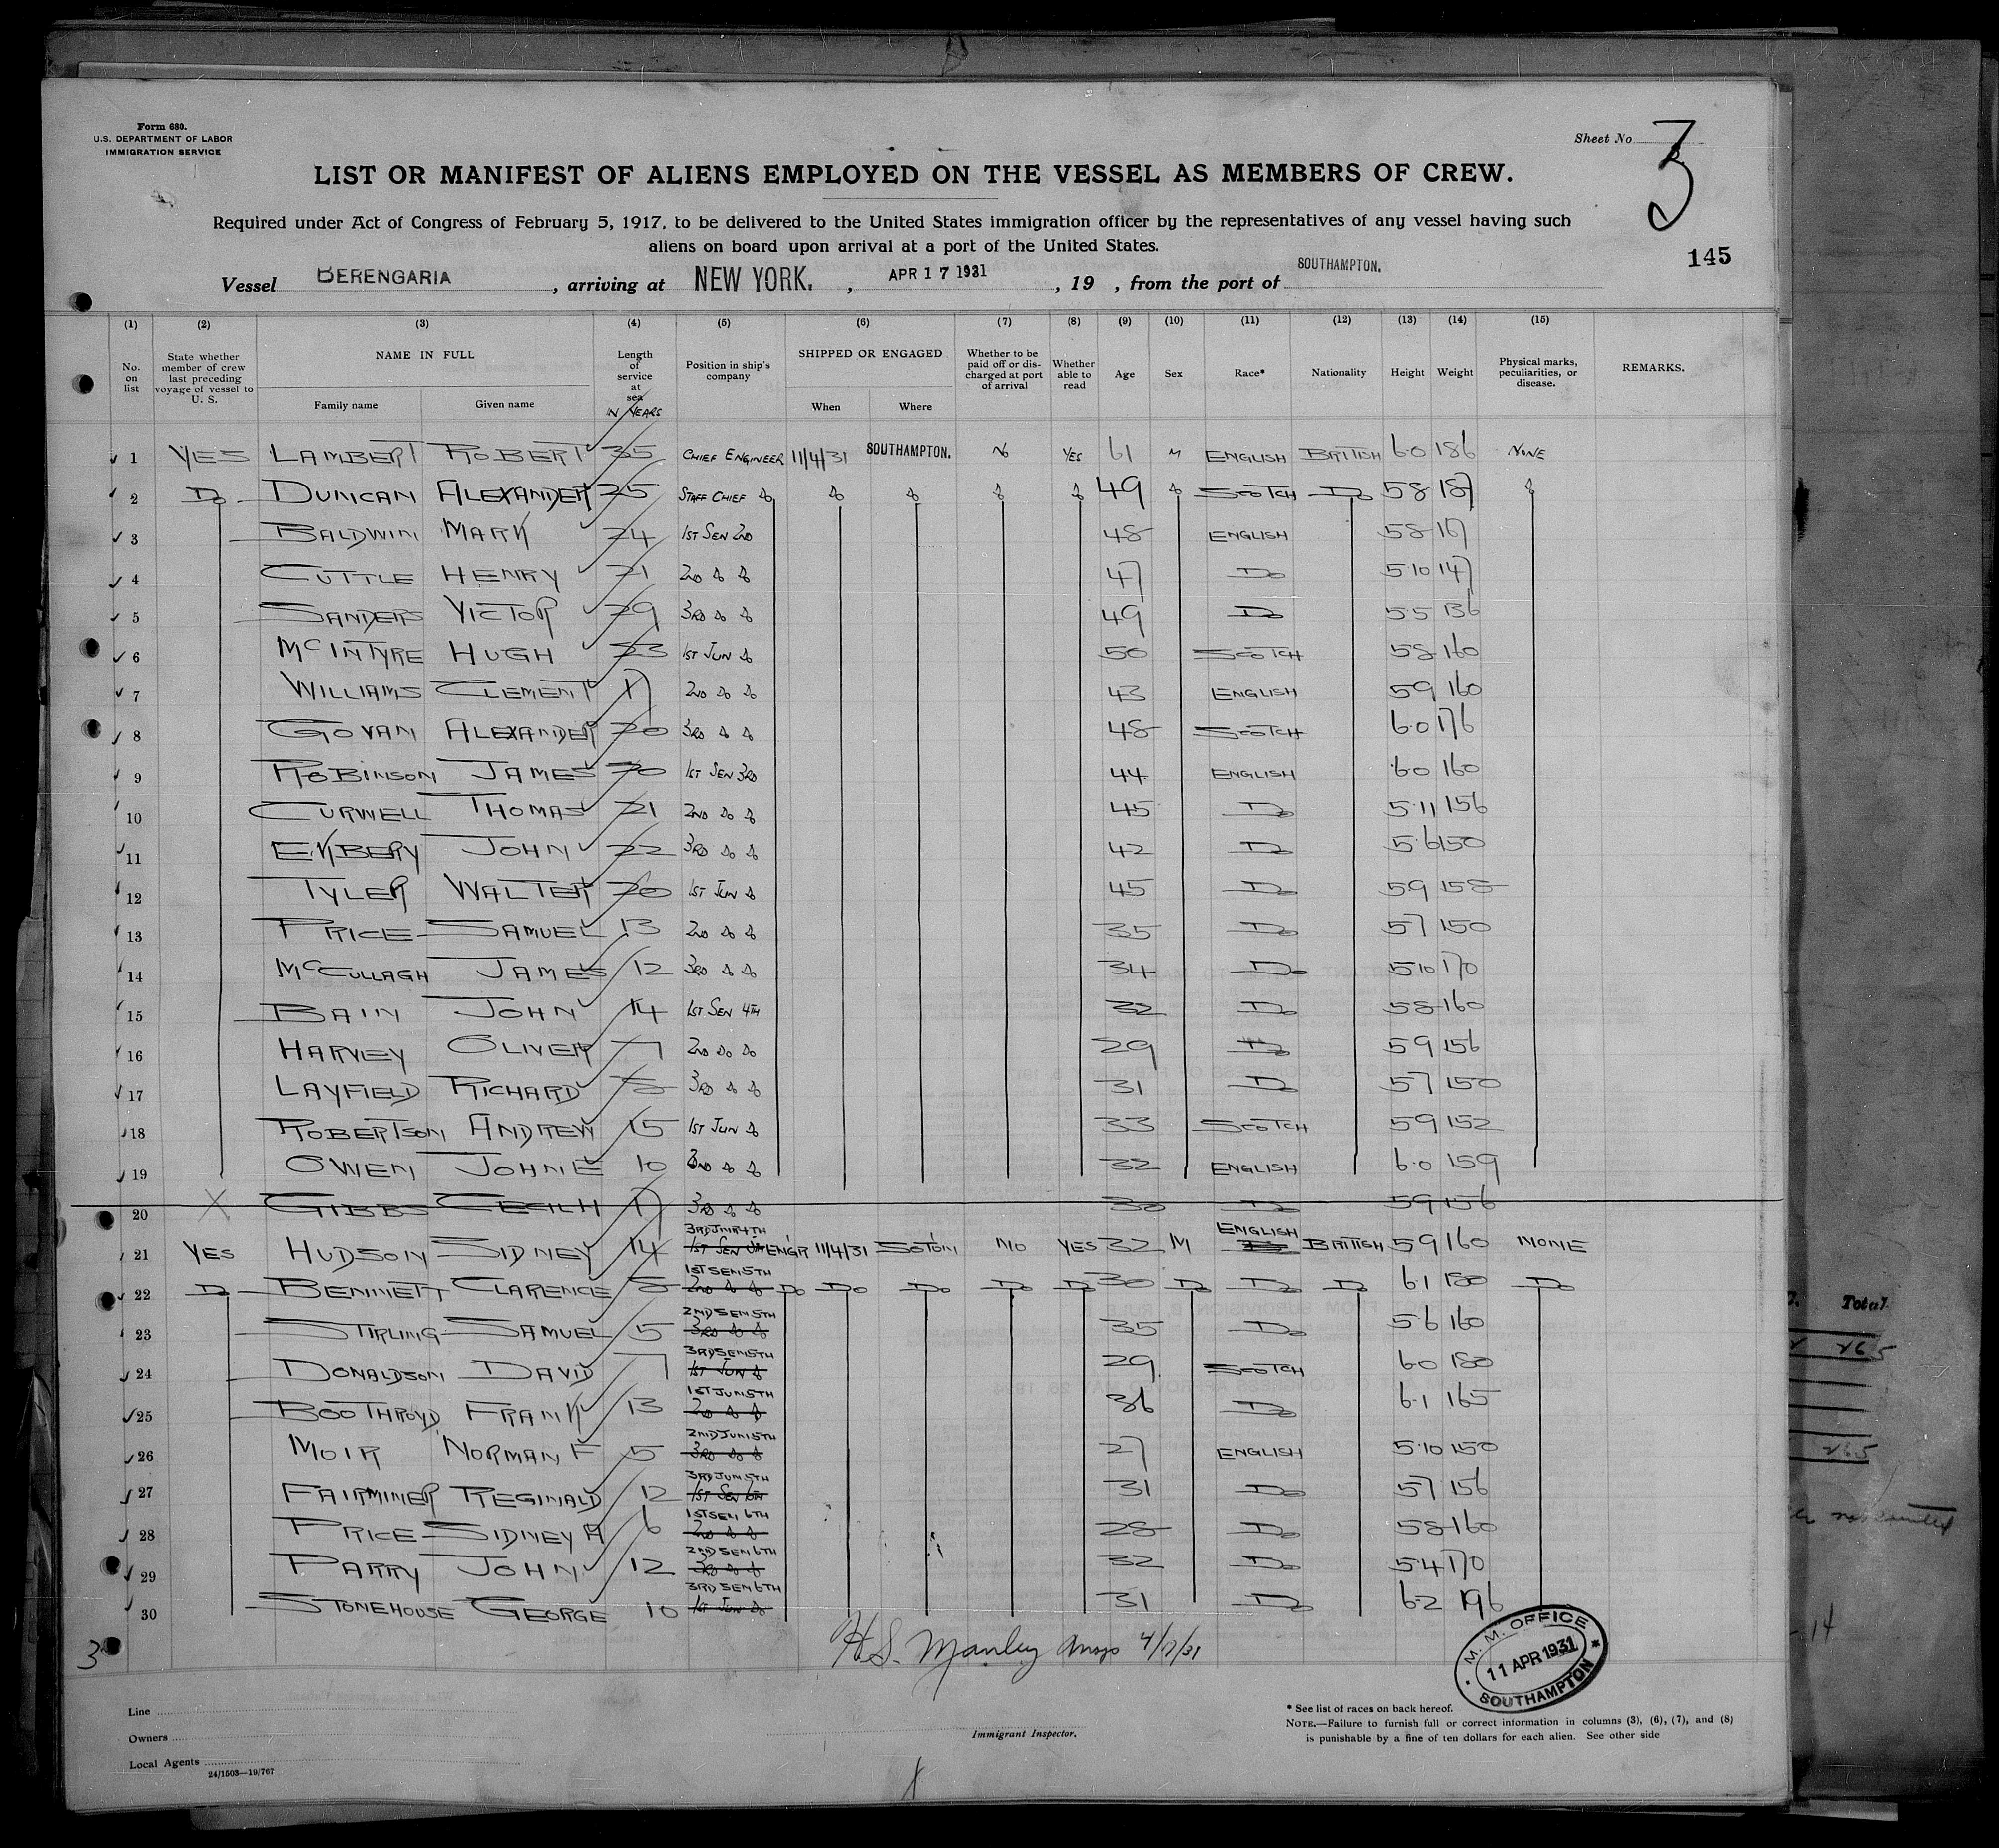 Form 680.
U.S. DEPARTMENT OF LABOR
IMMIGRATION SERVICE
Sheet No 3
LIST OR MANIFEST OF ALIENS EMPLOYED ON THE VESSEL AS MEMBERS OF CREW.
Required under Act of Congress of February 5, 1917, to be delivered to the United States immigration officer by the representatives of any vessel having such
aliens on board upon arrival at a port of the United States.
145
Vessel BERENGARIA , arriving at NEW YORK. , APR 17 1931 , 19 , from the port of SOUTHAMPTON.
(1) (2) (3) (4) (5) (6) (7) (8) (9) (10) (11) (12) (13) (14) (15)
No. on list State whether member of crew last preceding voyage of vessel to U. S. NAME IN FULL Family name Given name Length of service at sea IN YEARS Position in ship's company SHIPPED OR ENGAGED When Where Whether to be paid off or discharged at port of arrival Whether able to read Age Sex Race* Nationality Height Weight Physical marks, peculiarities, or disease. REMARKS.
1 YES LAMBERT ROBERT 35 CHIEF ENGINEER 11/4/31 SOUTHAMPTON. N YES 61 M ENGLISH BRITISH 6.0 186 NONE
2 Do DUNCAN ALEXANDER 25 STAFF CHIEF Do Do Do Do Do 49 Do SCOTCH Do 58 187 Do
3 BALDWIN MARK 24 1ST SEN 2ND 48 ENGLISH 58 167
4 CUTTLE HENRY 21 2ND Do Do 47 Do 5.10 147
5 SANDERS VICTOR 29 3RD Do Do 49 Do 5.5 136
6 McINTYRE HUGH 23 1ST JUN Do 50 SCOTCH 58 160
7 WILLIAMS CLEMENT 17 2ND Do Do 43 ENGLISH 59 160
8 GOVAN ALEXANDER 20 3RD Do Do 48 SCOTCH 6.0 176
9 ROBINSON JAMES 20 1ST SEN 3RD 44 ENGLISH 6.0 160
10 CURWELL THOMAS 21 2ND Do Do 45 Do 5.11 156
11 EKBERY JOHN 22 3RD Do Do 42 Do 5.6 150
12 TYLER WALTER 20 1ST JUN Do 45 Do 59 158
13 PRICE SAMUEL 13 2ND Do Do 35 Do 57 150
14 McCULLAGH JAMES 12 3RD Do Do 34 Do 5.10 170
15 BAIN JOHN 14 1ST SEN 4TH 32 Do 58 160
16 HARVEY OLIVER 7 2ND Do Do 29 Do 59 156
17 LAYFIELD RICHARD 8 3RD Do Do 31 Do 57 150
18 ROBERTSON ANDREW 15 1ST JUN Do 33 SCOTCH 59 152
19 OWEN JOHN E 10 2ND Do Do 32 ENGLISH 6.0 159
20 X GIBBS CECIL H 17 3RD Do Do 38 Do 59 156
3RD JNR 4TH
21 YES HUDSON SIDNEY 14 1ST SEN 5TH ENGR 11/4/31 SOTON NO YES 32 M ENGLISH BRITISH 59 160 NONE
1ST SEN 5TH
22 Do BENNETT CLARENCE 8 2ND Do Do Do Do Do Do Do 30 Do Do Do 6.1 180 Do
2ND SEN 5TH
23 STIRLING SAMUEL 5 3RD Do Do 35 Do 5.6 160
3RD SEN 5TH
24 DONALDSON DAVID 7 1ST JUN Do 29 SCOTCH 6.0 180
1ST JUN 5TH
25 BOOTHROYD FRANK 13 2ND Do Do 36 Do 6.1 165
2ND JUN 5TH
26 MOIR NORMAN F 5 3RD Do Do 27 ENGLISH 5.10 150
3RD JUN 5TH
27 FAIRMINER REGINALD 12 1ST SEN 6TH 31 Do 57 156
1ST SEN 6TH
28 PRICE SIDNEY A 6 2ND Do Do 28 Do 58 160
2ND SEN 6TH
29 PARRY JOHN 12 3RD Do Do 32 Do 5.4 170
3RD SEN 6TH
30 STONEHOUSE GEORGE 10 1ST JUN Do 31 Do 6.2 196
3
H.S. Manley 4/17/31
M. M. OFFICE
11 APR 1931
SOUTHAMPTON
Line
Owners
Local Agents
24/1503—19/767
Immigrant Inspector.
* See list of races on back hereof.
NOTE.—Failure to furnish full or correct information in columns (3), (6), (7), and (8)
is punishable by a fine of ten dollars for each alien. See other side
Total
265
265
14